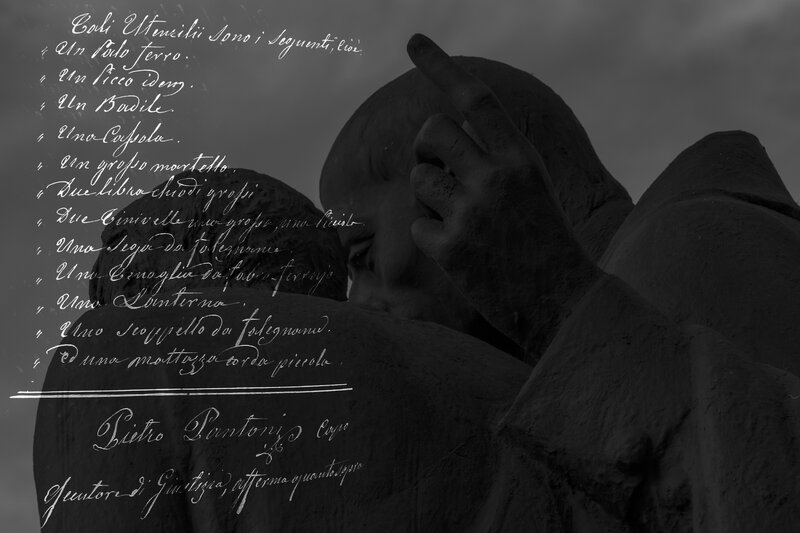 Tali Utensilii sono i seguenti, cioè
" Un Palo ferro.
" Un Picco idem.
" Un Badile.
" Una Cassola.
" Un grosso martello.
" Due libra chiodi grossi
" Due Tinivelle una grossa, una piccola
" Una Sega da falegname
" Una Tenaglia da fabro ferrajo
" Una Lanterna.
" Uno scoppello da falegname.
" Ed una mattazza corda piccola.
Pietro Pantoni Capo
Esecutore di Giustizia, afferma quanto sopra